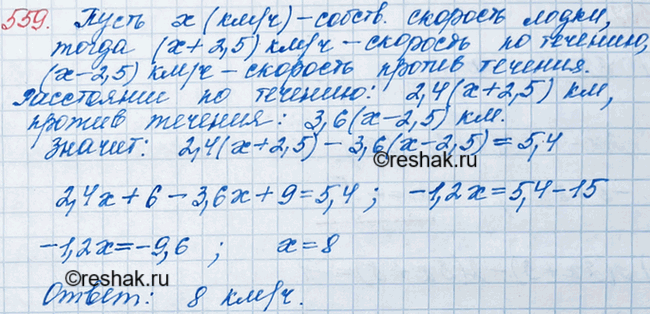 559. Пусть x (км/ч) – собств. скорость лодки,
тогда (x + 2,5) км/ч – скорость по течению,
(x – 2,5) км/ч – скорость против течения.
Расстоянии по течению: 2,4(x + 2,5) км,
против течения: 3,6(x – 2,5) км.
Значит: 2,4(x + 2,5) – 3,6(x – 2,5) = 5,4
2,4x + 6 – 3,6x + 9 = 5,4 ; –1,2x = 5,4 – 15
–1,2x = –9,6 ; x = 8
Ответ: 8 км/ч.
©reshak.ru
©reshak.ru
©reshak.ru